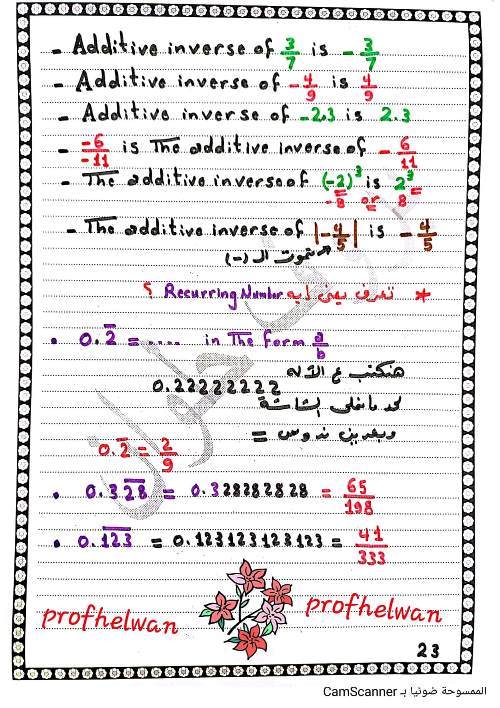 - Additive inverse of 3/7 is - 3/7
- Additive inverse of - 4/9 is 4/9
- Additive inverse of -2.3 is 2.3
- -6/-11 is The additive inverse of - 6/11
- The additive inverse of (-2)³ is 2³
-8 or 8
- The additive inverse of |-4/5| is - 4/5
بتموت الـ (-)
* تعرف يعنى إيه Recurring Number ؟
• 0.2̅ = ..... in The form a/b
هنكتب ع الآله
0.22222222
لحد ما نملى الشاشة
وبعدين ندوس =
0.2̅ = 2/9
• 0.32̅8̅ = 0.328282828 = 65/198
• 0.1̅2̅3̅ = 0.123123123123 = 41/333
profhelwan
profhelwan
23
الممسوحة ضوئيا بـ CamScanner